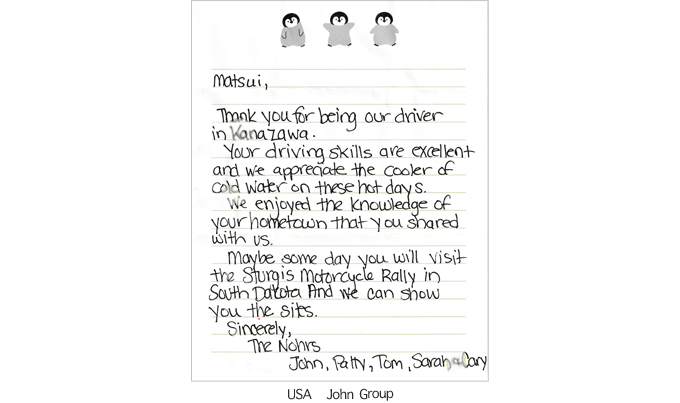 Matsui,
Thank you for being our driver
in Kanazawa.
Your driving skills are excellent
and we appreciate the cooler of
cold water on these hot days.
We enjoyed the knowledge of
your hometown that you shared
with us.
Maybe some day you will visit
the Sturgis Motorcycle Rally in
South Dakota And we can show
you the sites.
Sincerely,
The Nohrs
John, Patty, Tom, Sarah, Cary
USA John Group